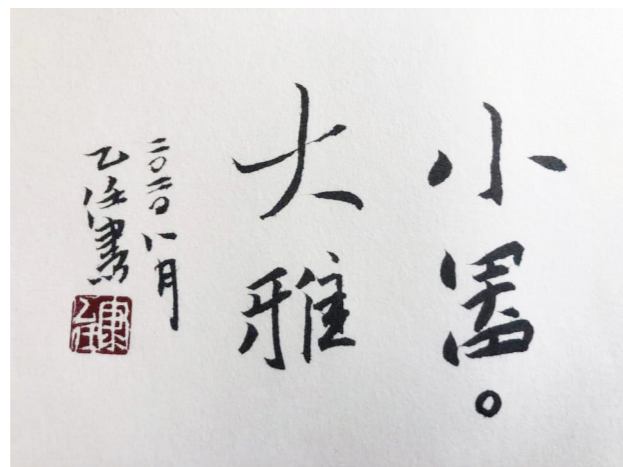 小
大雅
二〇二〇八月
乙任書